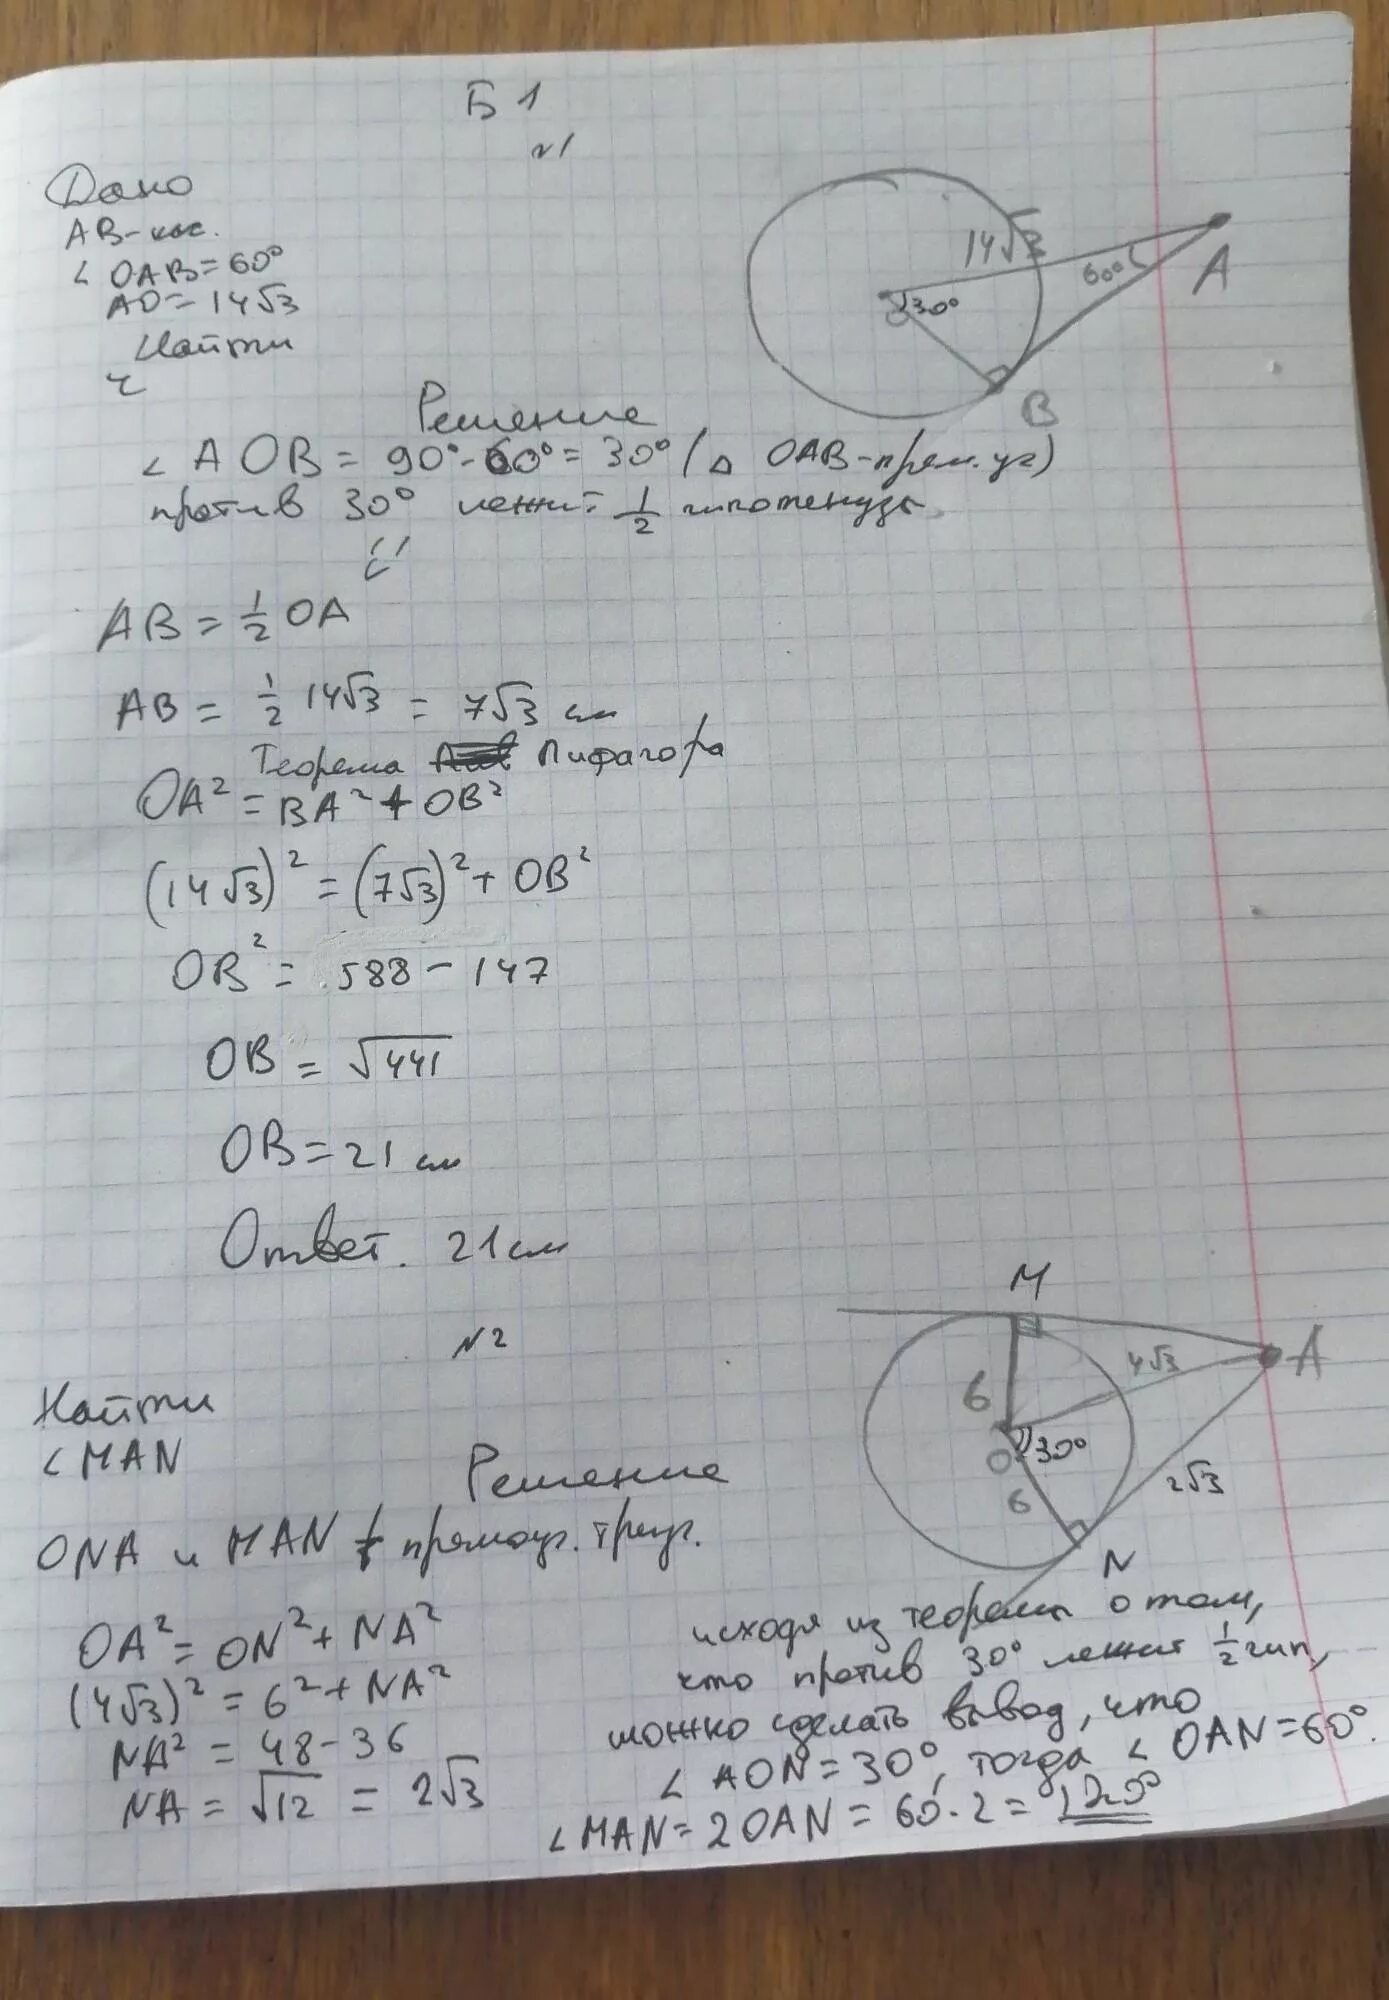 Б 1
№1
Дано
AB-кас.
∠ OAB=60°
AO=14√3
Найти
r
14√3
60°
A
O
30°
B
Решение
∠ AOB = 90°-60°=30° (△ OAB-прям.уг)
против 30° лежит 1/2 гипотенузы
AB = 1/2 OA
AB = 1/2 14√3 = 7√3 см
Теорема Пифагора
OA² = BA² + OB²
(14√3)² = (7√3)² + OB²
OB² = 588 - 147
OB = √441
OB = 21 см
Ответ. 21 см
№2
M
A
4√3
6
O
30°
6
2√3
N
Найти
∠ MAN
Решение
ONA и MAN прямоуг. треуг.
OA² = ON² + NA²
(4√3)² = 6² + NA²
NA² = 48 - 36
NA = √12 = 2√3
исходя из теоремы о том,
что против 30° лежит 1/2 гип,
можно сделать вывод, что
∠ AON = 30°, тогда ∠ OAN = 60°.
∠ MAN = 2OAN = 60·2 = 120°